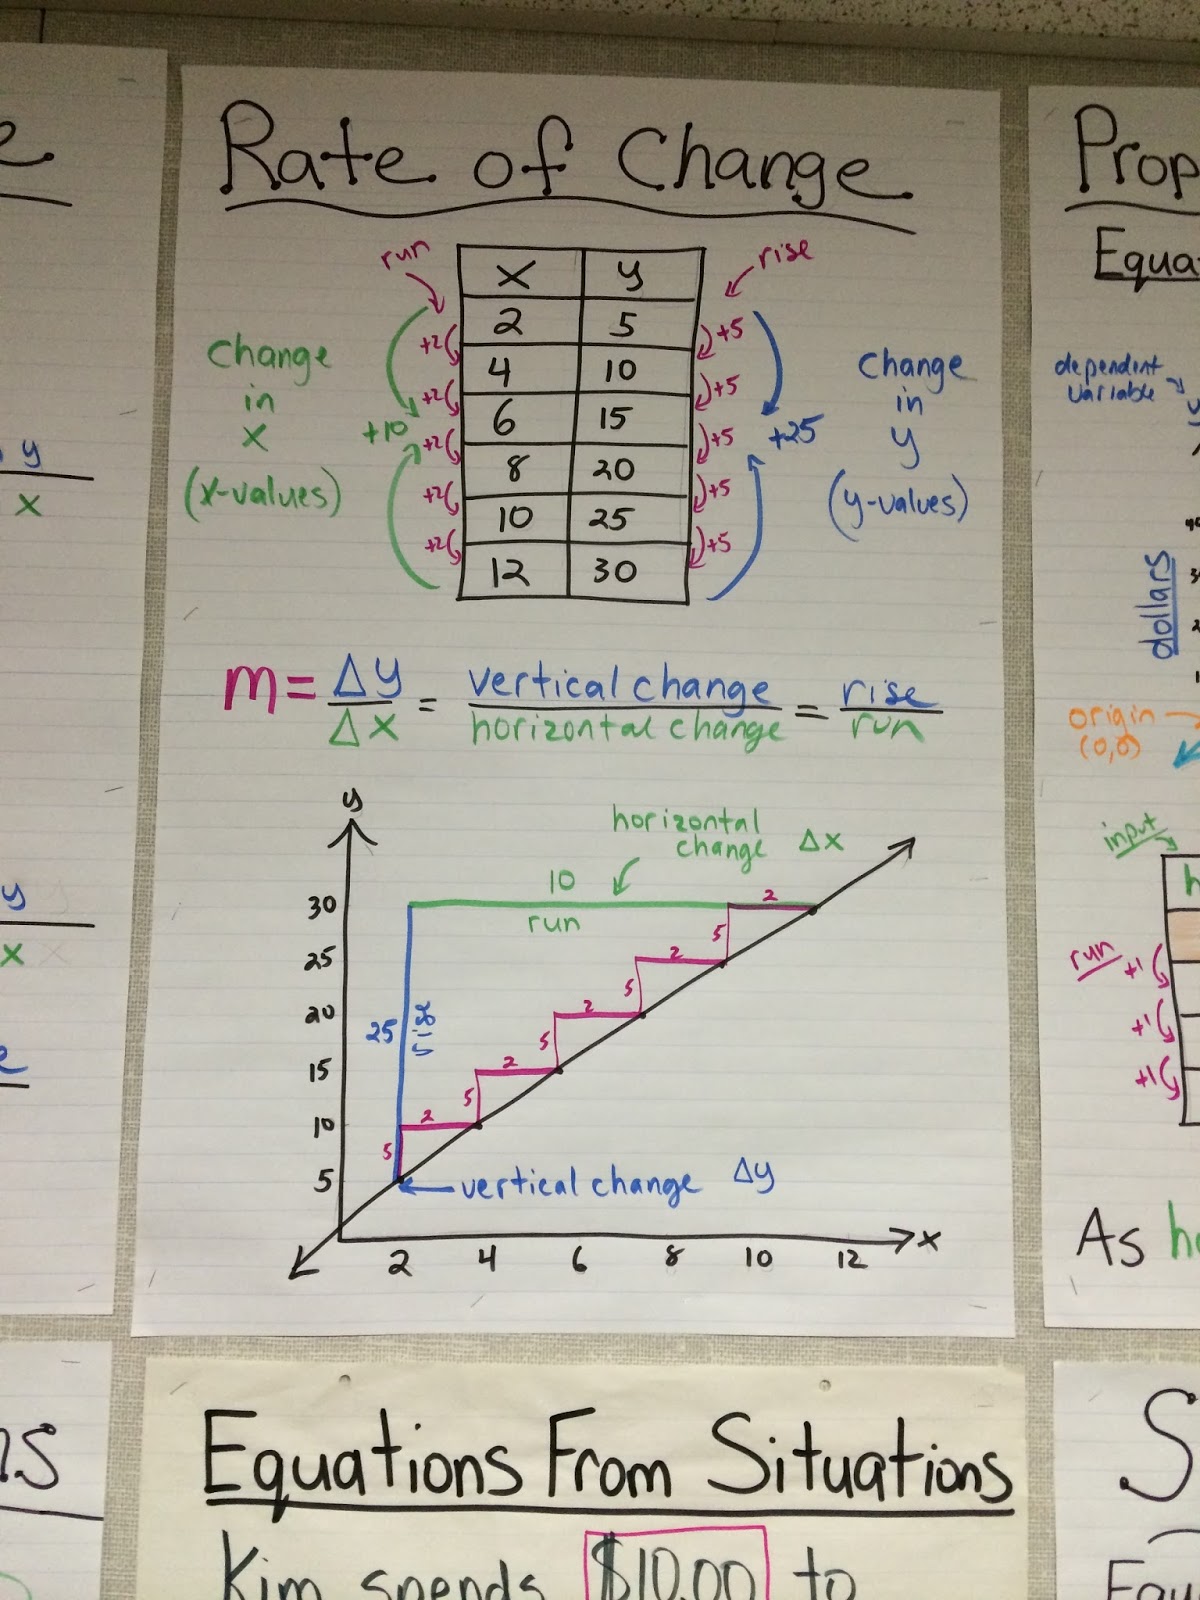 Rate of Change
run
rise
x y
2 5
4 10
6 15
8 20
10 25
12 30
+2
+2
+2
+2
+2
+10
+5
+5
+5
+5
+5
+25
change
in
x
(x-values)
change
in
y
(y-values)
m = Δy/Δx = vertical change/horizontal change = rise/run
y
horizontal
change Δx
10
run
30
25
20
15
10
5
25
rise
5
2
5
2
5
2
5
2
5
2
vertical change Δy
2 4 6 8 10 12
x
Equations From Situations
Kim spends $10.00 to
y
x
y
x
Prop
Equa
dependent
variable
dollars
origin
(0,0)
input
h
run
+1
+1
+1
As h
S